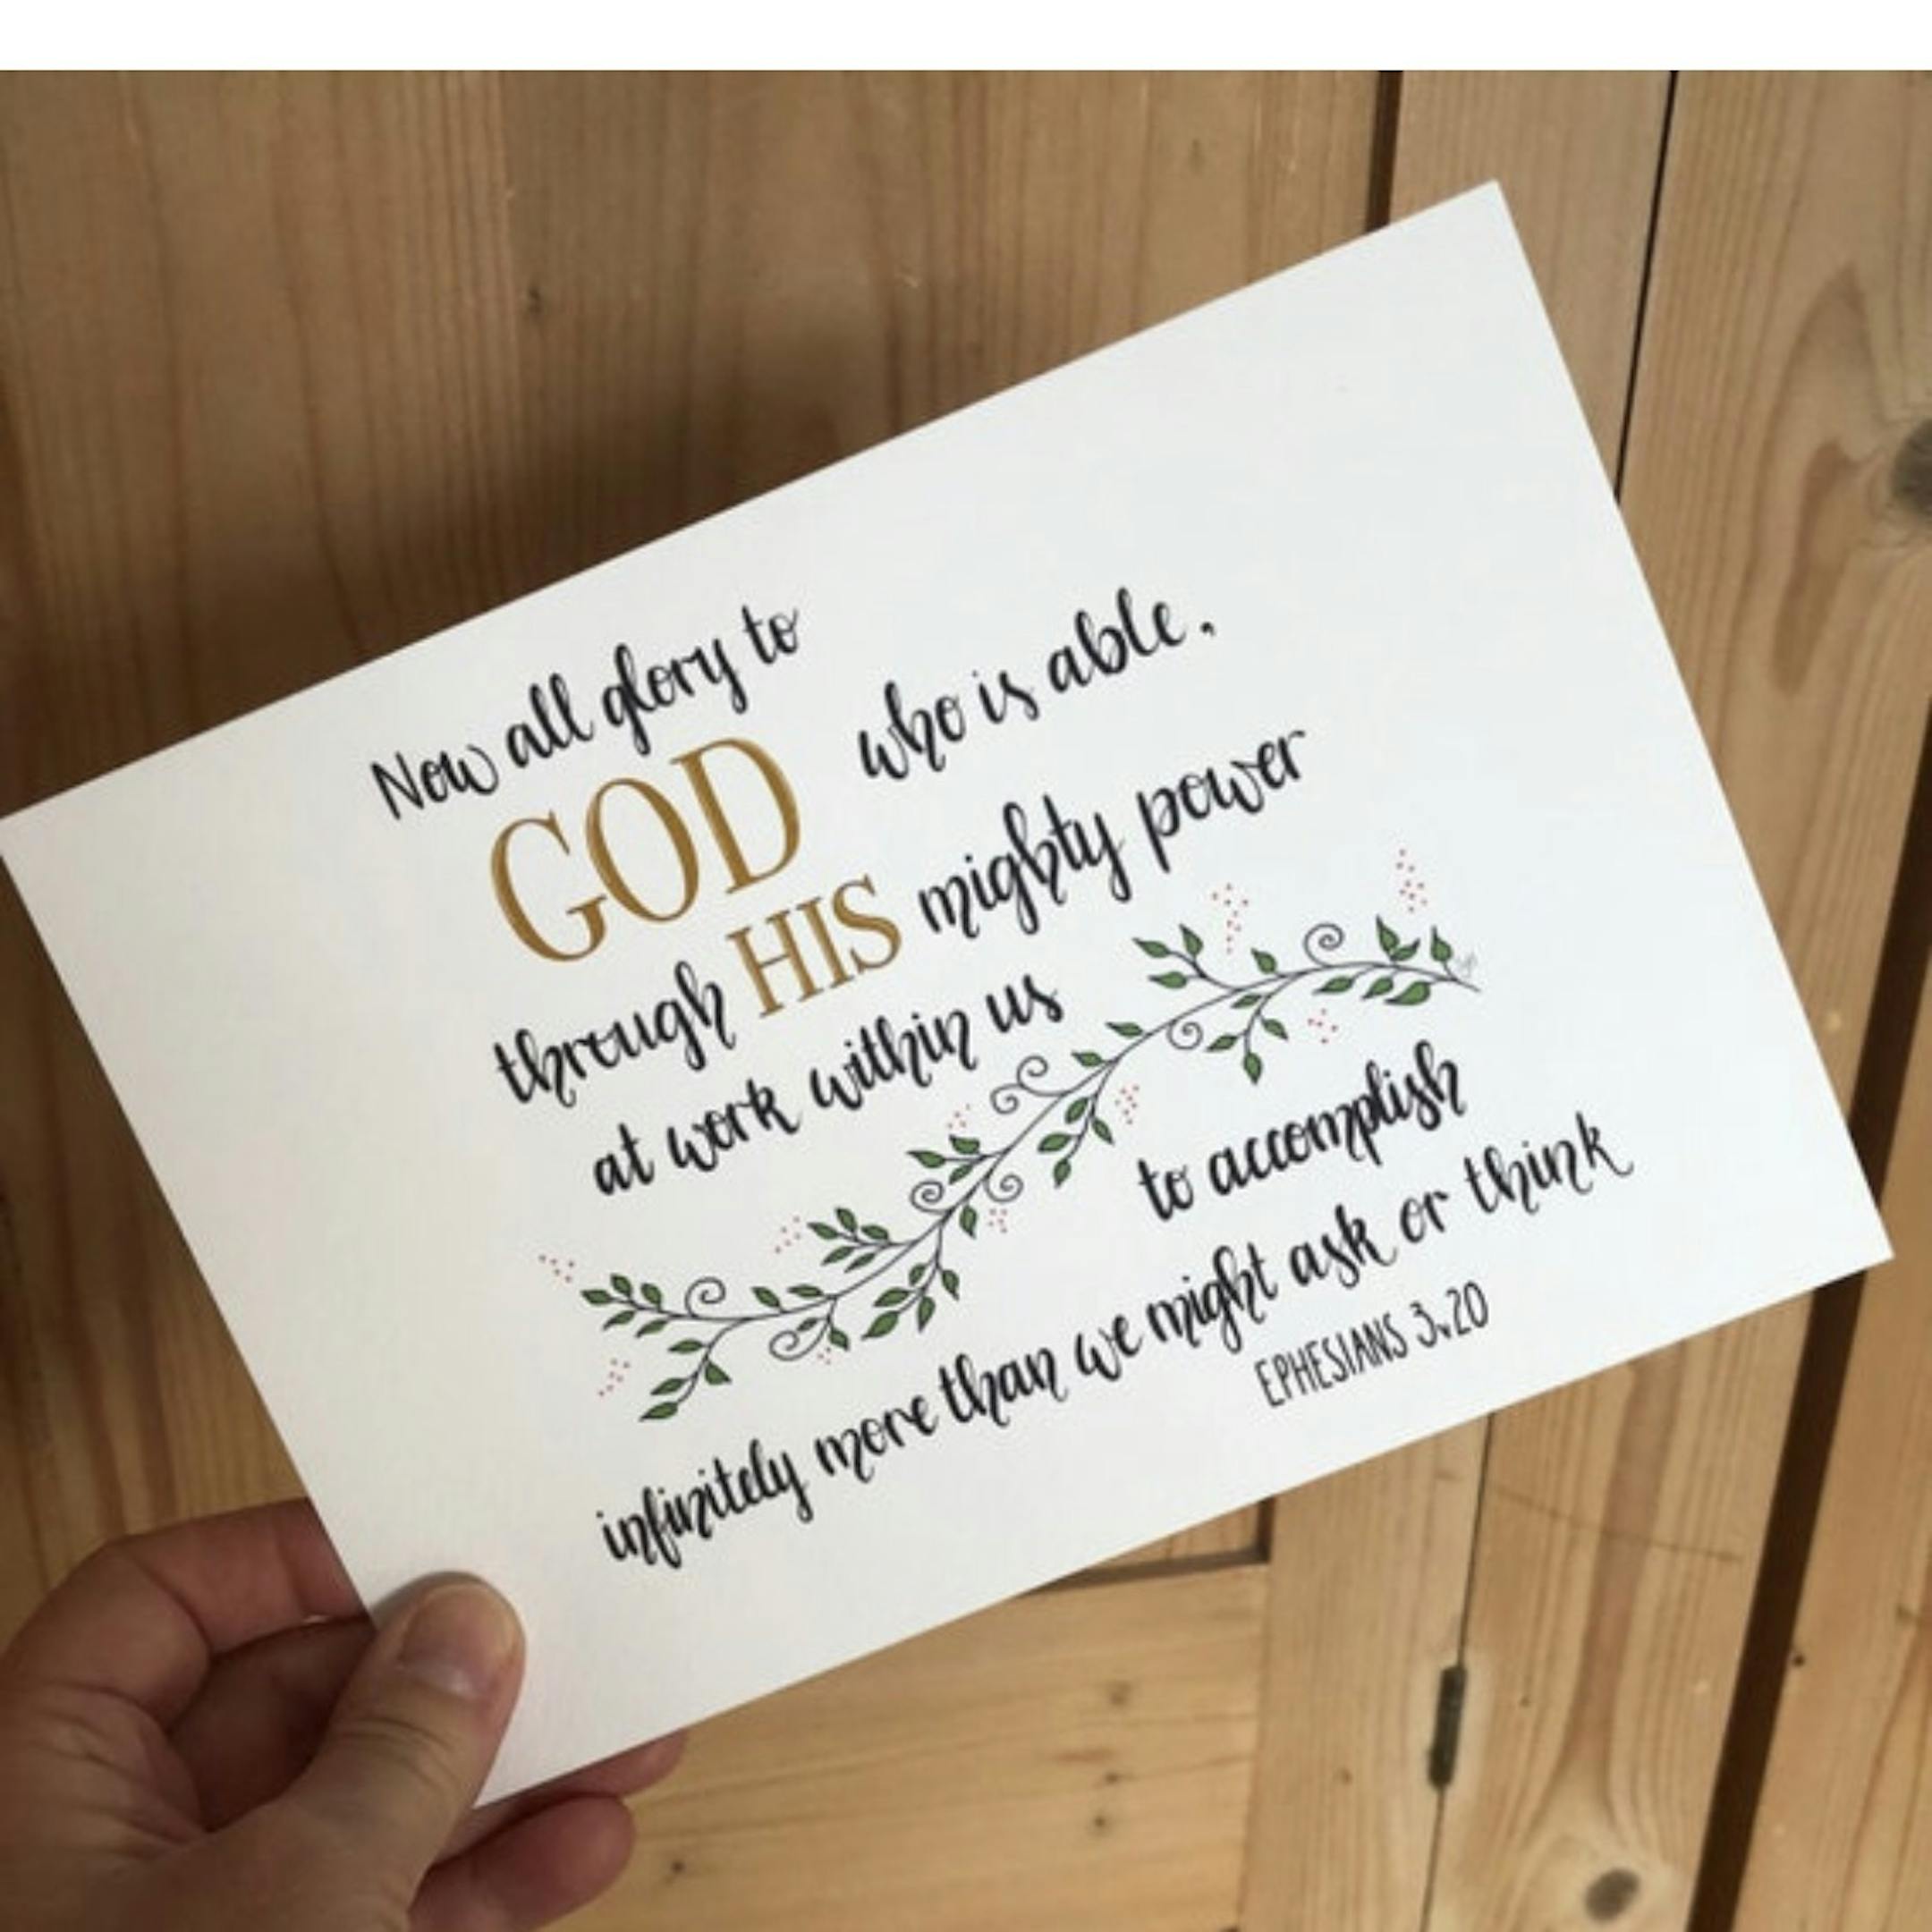 Now all glory to
GOD who is able,
through HIS mighty power
at work within us
to accomplish
infinitely more than we might ask or think
EPHESIANS 3v20